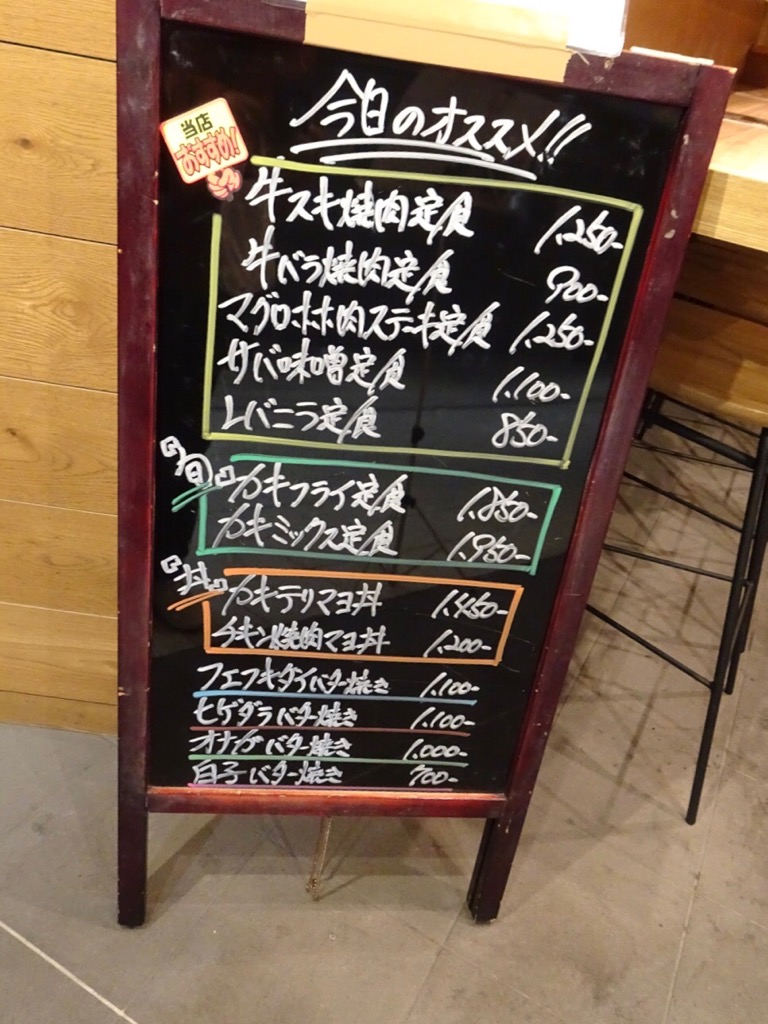 今日のオススメ!!
当店
おすすめ!
牛スキ焼肉定食 1,250-
牛バラ焼肉定食 900-
マグロホホ肉ステーキ定食 1,250-
サバ味噌定食 1,100-
レバニラ定食 850-
『旬』
カキフライ定食 1,850-
カキミックス定食 1,950-
『丼』
カキテリマヨ丼 1,450-
チキン焼肉マヨ丼 1,200-
フエフキダイバター焼き 1,100-
ヒゲダラバター焼き 1,100-
オナガバター焼き 1,000-
白子バター焼き 700-